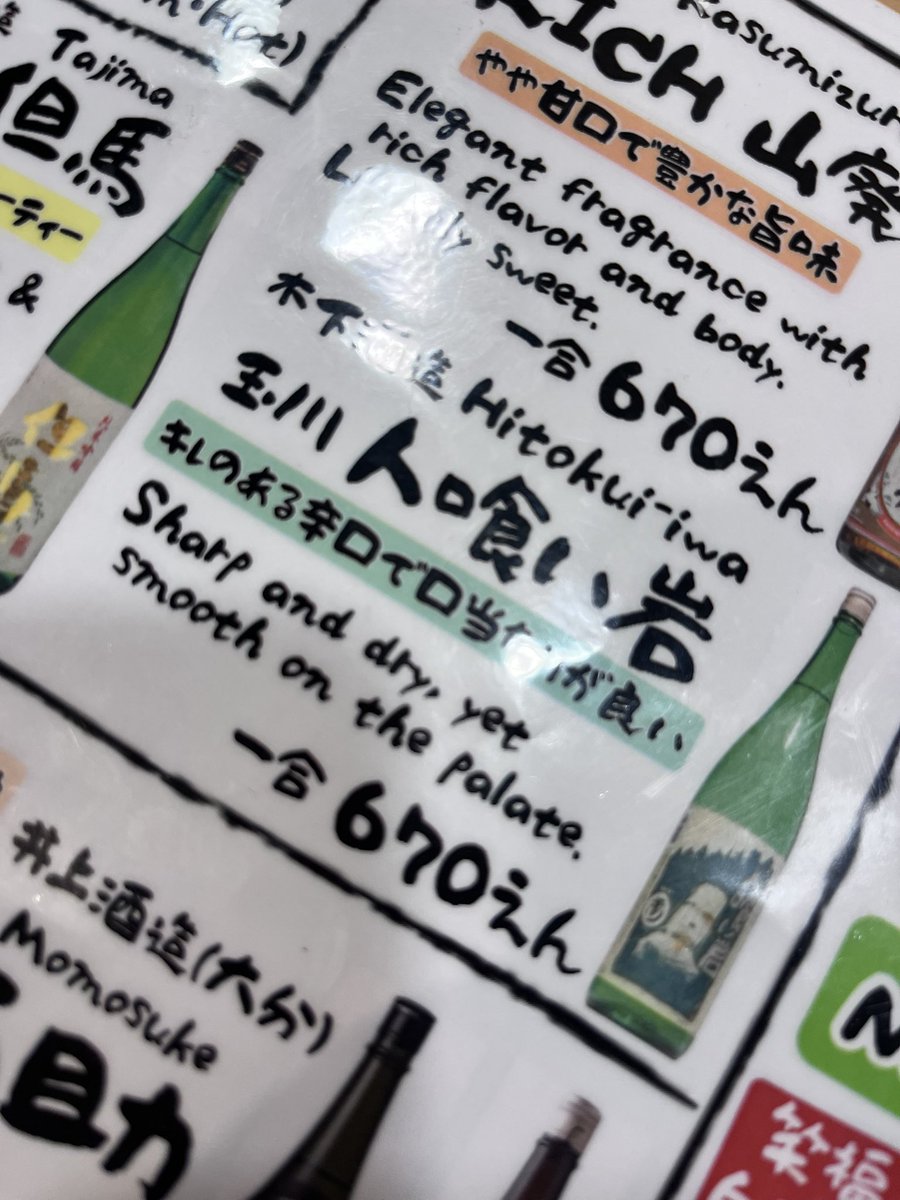 Hot)
造
Tajima
但馬
ーティー
&
Kasumizur
RICH 山廃
やや甘口で豊かな旨味
Elegant fragrance with
rich flavor and body.
sweet.
一合 670えん
木下酒造 Hitokui-iwa
玉川 人喰い岩
キレのある辛口で口当たりが良い
Sharp and dry, yet
smooth on the palate.
一合 670えん
井上酒造(大分)
Momosuke
百助
笑福